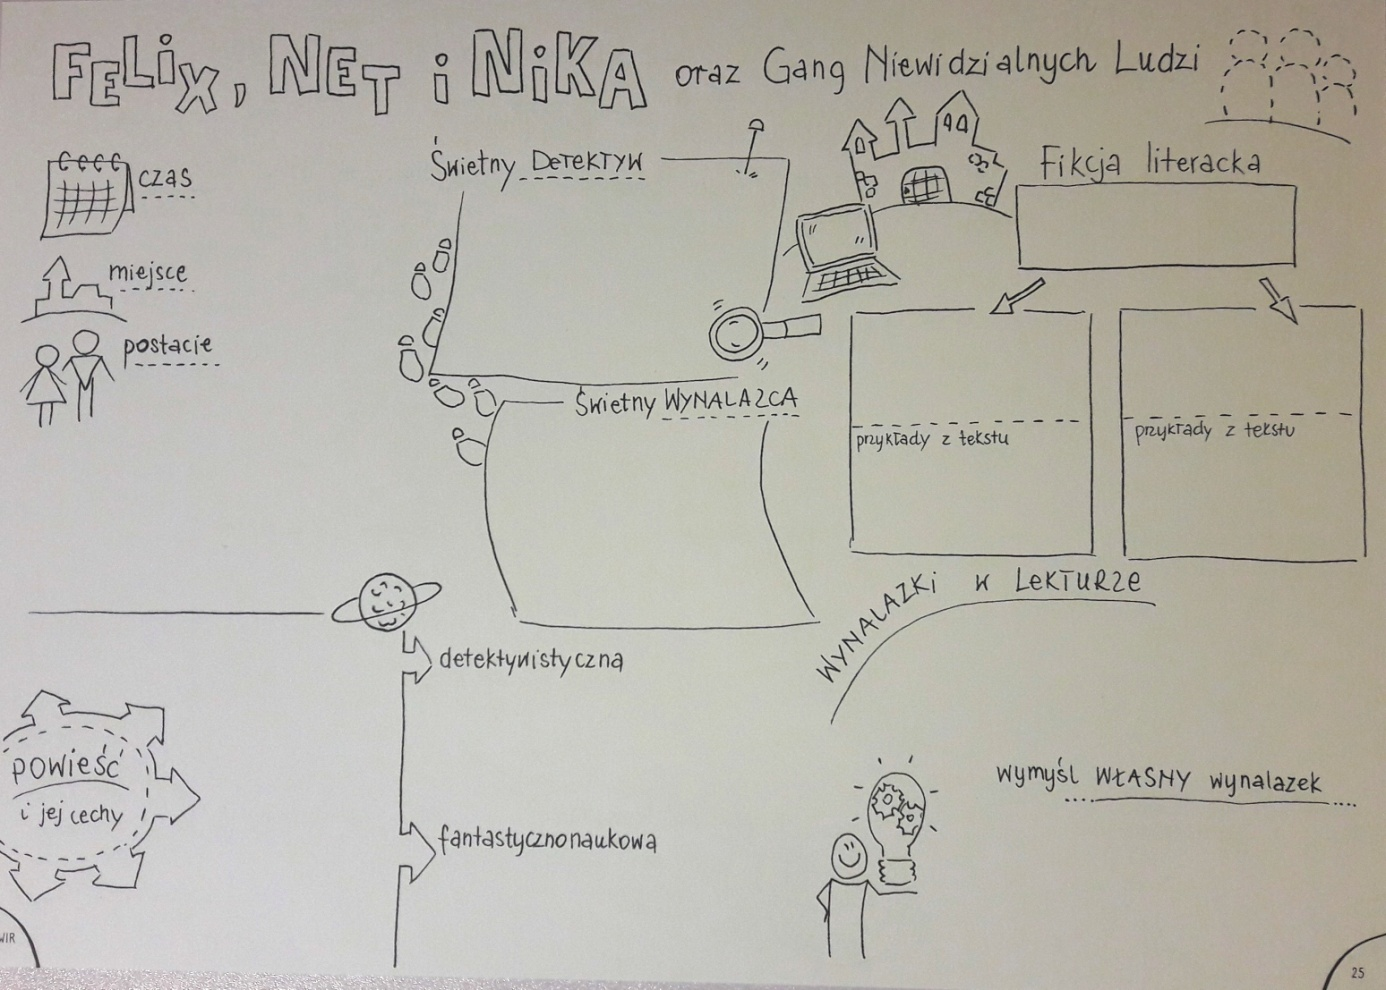 FELiX, NET i NiKA oraz Gang Niewidzialnych Ludzi
czas
miejsce
postacie
Świetny DETEKTYW
Świetny WYNALAZCA
Fikcja literacka
przykłady z tekstu
przykłady z tekstu
powieść
i jej cechy
detektywistyczna
fantastycznonaukowa
WYNALAZKi w LEKTURZE
wymyśl WŁASNY wynalazek
WIR
25